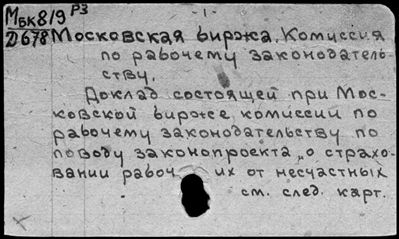 Мбк819 РЗ -1-
Д678 Московская биржа. Комиссия
по рабочему законодатель-
ству.
Доклад состоящей при Мос-
ковской бирже комиссии по
рабочему законодательству по
поводу законопроекта „о страхо-
вании рабоч их от несчастных
см. след. карт.